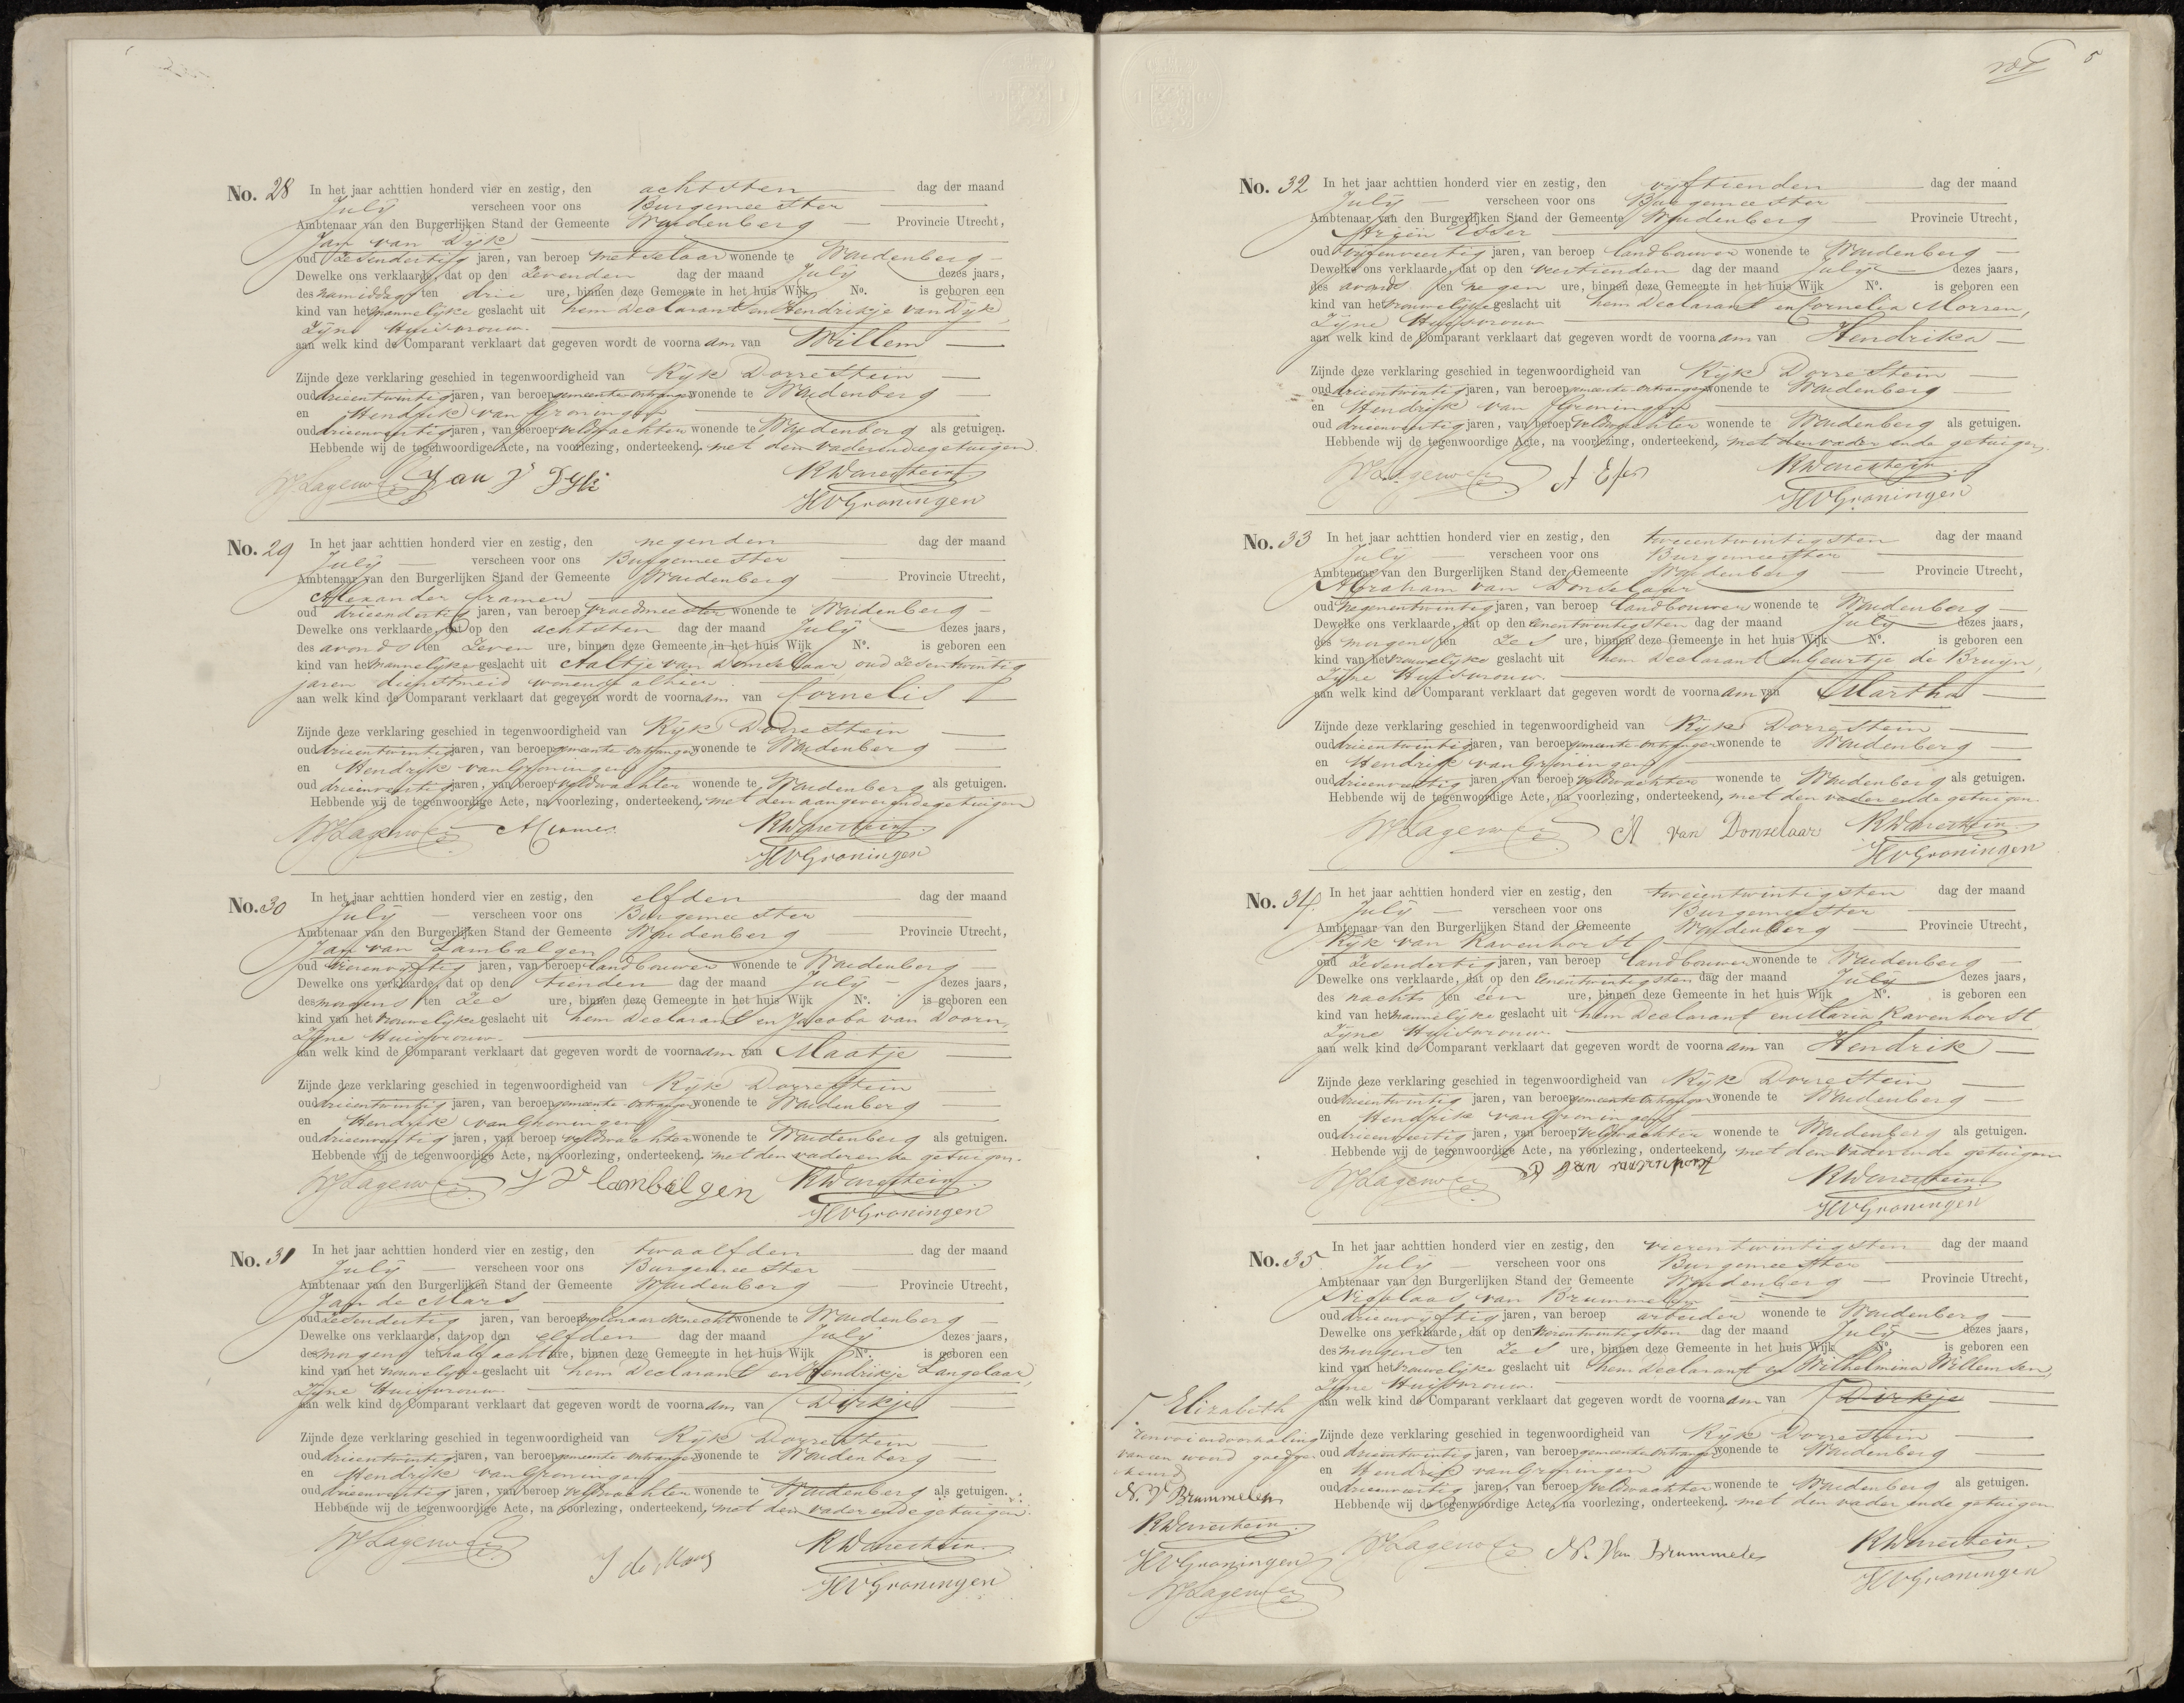 No. 28 In het jaar achttien honderd vier en zestig, den achtsten dag der maand
July verscheen voor ons Burgemeester
Ambtenaar van den Burgerlijken Stand der Gemeente Woudenberg Provincie Utrecht,
Jan van Dijk
oud Zesendertig jaren, van beroep metselaar wonende te Woudenberg
Dewelke ons verklaarde, dat op den Zevenden dag der maand July dezes jaars,
des namiddags ten drie ure, binnen deze Gemeente in het huis Wijk No. is geboren een
kind van het mannelijke geslacht uit hem Declarant en Hendrikje van Dijk,
Zijne Huisvrouw.
aan welk kind de Comparant verklaart dat gegeven wordt de voornaam van Willem
Zijnde deze verklaring geschied in tegenwoordigheid van Rijk Dorrestein
oud drieentwintig jaren, van beroep gemeente ontvanger wonende te Woudenberg
en Hendrik van Groningen
oud drieenveertig jaren, van beroep veldwachter wonende te Woudenberg als getuigen.
Hebbende wij de tegenwoordige Acte, na voorlezing, onderteekend, met den vader ende getuigen.
Lagerwey Jan V Dijk RDorrestein
HVGroningen
No. 29 In het jaar achttien honderd vier en zestig, den negenden dag der maand
July verscheen voor ons Burgemeester
Ambtenaar van den Burgerlijken Stand der Gemeente Woudenberg Provincie Utrecht,
Alexander Cramer
oud drieendertig jaren, van beroep vroedmeester wonende te Woudenberg
Dewelke ons verklaarde, dat op den achtsten dag der maand July dezes jaars,
des avonds ten Zeven ure, binnen deze Gemeente in het huis Wijk No. is geboren een
kind van het mannelijke geslacht uit Aaltje van Donselaar, oud Zesentwintig
jaren dienstmeid wonende alhier.
aan welk kind de Comparant verklaart dat gegeven wordt de voornaam van Cornelis
Zijnde deze verklaring geschied in tegenwoordigheid van Rijk Dorrestein
oud drieentwintig jaren, van beroep gemeente ontvanger wonende te Woudenberg
en Hendrik van Groningen
oud drieenveertig jaren, van beroep veldwachter wonende te Woudenberg als getuigen.
Hebbende wij de tegenwoordige Acte, na voorlezing, onderteekend, met den aangever ende getuigen
Lagerwey ACramer RDorrestein
HVGroningen
No. 30 In het jaar achttien honderd vier en zestig, den elfden dag der maand
July verscheen voor ons Burgemeester
Ambtenaar van den Burgerlijken Stand der Gemeente Woudenberg Provincie Utrecht,
Jan van Lambalgen
oud vierenvijftig jaren, van beroep landbouwer wonende te Woudenberg
Dewelke ons verklaarde, dat op den tienden dag der maand July dezes jaars,
des morgens ten Zes ure, binnen deze Gemeente in het huis Wijk No. is geboren een
kind van het vrouwelijke geslacht uit hem Declarant en Jacoba van Doorn,
Zijne Huisvrouw.
aan welk kind de Comparant verklaart dat gegeven wordt de voornaam van Maatje
Zijnde deze verklaring geschied in tegenwoordigheid van Rijk Dorrestein
oud drieentwintig jaren, van beroep gemeente ontvanger wonende te Woudenberg
en Hendrik van Groningen
oud drieenveertig jaren, van beroep veldwachter wonende te Woudenberg als getuigen.
Hebbende wij de tegenwoordige Acte, na voorlezing, onderteekend, met den vader en de getuigen.
Lagerwey J V lambalgen RDorrestein
HVGroningen
No. 31 In het jaar achttien honderd vier en zestig, den twaalfden dag der maand
July verscheen voor ons Burgemeester
Ambtenaar van den Burgerlijken Stand der Gemeente Woudenberg Provincie Utrecht,
Jan de Mars
oud Zesendertig jaren, van beroep molenaarsknecht wonende te Woudenberg
Dewelke ons verklaarde, dat op den elfden dag der maand July dezes jaars,
des morgens ten half acht ure, binnen deze Gemeente in het huis Wijk No. is geboren een
kind van het vrouwelijke geslacht uit hem Declarant en Hendrikje Langelaar,
Zijne Huisvrouw.
aan welk kind de Comparant verklaart dat gegeven wordt de voornaam van Dirkje
Zijnde deze verklaring geschied in tegenwoordigheid van Rijk Dorrestein
oud drieentwintig jaren, van beroep gemeente ontvanger wonende te Woudenberg
en Hendrik van Groningen
oud drieenveertig jaren, van beroep veldwachter wonende te Woudenberg als getuigen.
Hebbende wij de tegenwoordige Acte, na voorlezing, onderteekend, met den vader ende getuigen.
Lagerwey J de Mars RDorrestein
HVGroningen
5
No. 32 In het jaar achttien honderd vier en zestig, den vijftienden dag der maand
July verscheen voor ons Burgemeester
Ambtenaar van den Burgerlijken Stand der Gemeente Woudenberg Provincie Utrecht,
Ariën Esser
oud vijfenveertig jaren, van beroep landbouwer wonende te Woudenberg
Dewelke ons verklaarde, dat op den veertienden dag der maand July dezes jaars,
des avonds ten negen ure, binnen deze Gemeente in het huis Wijk No. is geboren een
kind van het vrouwelijke geslacht uit hem Declarant en Cornelia Morren,
Zijne Huisvrouw
aan welk kind de Comparant verklaart dat gegeven wordt de voornaam van Hendrika
Zijnde deze verklaring geschied in tegenwoordigheid van Rijk Dorrestein
oud drieentwintig jaren, van beroep gemeente ontvanger wonende te Woudenberg
en Hendrik van Groningen
oud drieenveertig jaren, van beroep veldwachter wonende te Woudenberg als getuigen.
Hebbende wij de tegenwoordige Acte, na voorlezing, onderteekend, met den vader ende getuigen.
Lagerwey A Esser RDorrestein
HVGroningen
No. 33 In het jaar achttien honderd vier en zestig, den tweeentwintigsten dag der maand
July verscheen voor ons Burgemeester
Ambtenaar van den Burgerlijken Stand der Gemeente Woudenberg Provincie Utrecht,
Abraham van Donselaar
oud negenentwintig jaren, van beroep landbouwer wonende te Woudenberg
Dewelke ons verklaarde, dat op den eenentwintigsten dag der maand July dezes jaars,
des morgens ten Zes ure, binnen deze Gemeente in het huis Wijk No. is geboren een
kind van het vrouwelijke geslacht uit hem Declarant en Geurtje de Bruijn,
Zijne Huisvrouw.
aan welk kind de Comparant verklaart dat gegeven wordt de voornaam van Martha
Zijnde deze verklaring geschied in tegenwoordigheid van Rijk Dorrestein
oud drieentwintig jaren, van beroep gemeente ontvanger wonende te Woudenberg
en Hendrik van Groningen
oud drieenveertig jaren van beroep veldwachter wonende te Woudenberg als getuigen.
Hebbende wij de tegenwoordige Acte, na voorlezing, onderteekend, met den vader ende getuigen.
Lagerwey A van Donzelaar RDorrestein
HVGroningen
No. 34. In het jaar achttien honderd vier en zestig, den tweeentwintigsten dag der maand
July verscheen voor ons Burgemeester
Ambtenaar van den Burgerlijken Stand der Gemeente Woudenberg Provincie Utrecht,
Rijk van Ravenhorst
oud Zesendertig jaren, van beroep landbouwer wonende te Woudenberg
Dewelke ons verklaarde, dat op den eenentwintigsten dag der maand July dezes jaars,
des nachts ten een ure, binnen deze Gemeente in het huis Wijk No. is geboren een
kind van het mannelijke geslacht uit hem Declarant en Maria Ravenhorst
Zijne Huisvrouw.
aan welk kind de Comparant verklaart dat gegeven wordt de voornaam van Hendrik
Zijnde deze verklaring geschied in tegenwoordigheid van Rijk Dorrestein
oud drieentwintig jaren, van beroep gemeente ontvanger wonende te Woudenberg
en Hendrik van Groningen
oud drieenveertig jaren, van beroep veldwachter wonende te Woudenberg als getuigen.
Hebbende wij de tegenwoordige Acte, na voorlezing, onderteekend, met den vader ende getuigen
Lagerwey R van ravenhorst RDorrestein
HVGroningen
No. 35. In het jaar achttien honderd vier en zestig, den vierentwintigsten dag der maand
July verscheen voor ons Burgemeester
Ambtenaar van den Burgerlijken Stand der Gemeente Woudenberg Provincie Utrecht,
Nigolaas van Brummelen
oud drieenvijftig jaren, van beroep arbeider wonende te Woudenberg
Dewelke ons verklaarde, dat op den vierentwintigsten dag der maand July dezes jaars,
des morgens ten Zes ure, binnen deze Gemeente in het huis Wijk No. is geboren een
kind van het vrouwelijke geslacht uit hem Declarant en Wilhelmina Willemsen,
Zijne Huisvrouw.
aan welk kind de Comparant verklaart dat gegeven wordt de voornaam van Dirkje
Zijnde deze verklaring geschied in tegenwoordigheid van Rijk Dorrestein
oud drieentwintig jaren, van beroep gemeente ontvanger wonende te Woudenberg
en Hendrik van Groningen
oud drieenveertig jaren, van beroep veldwachter wonende te Woudenberg als getuigen.
Hebbende wij de tegenwoordige Acte, na voorlezing, onderteekend, met den vader ende getuigen
Lagerwey N. Van Brummelen RDorrestein
HVGroningen
Elizabeth
renvooi en doorhaling
van een woord goedge
keurd
N. V Brummelen
RDorrestein
HVGroningen
Lagerwey